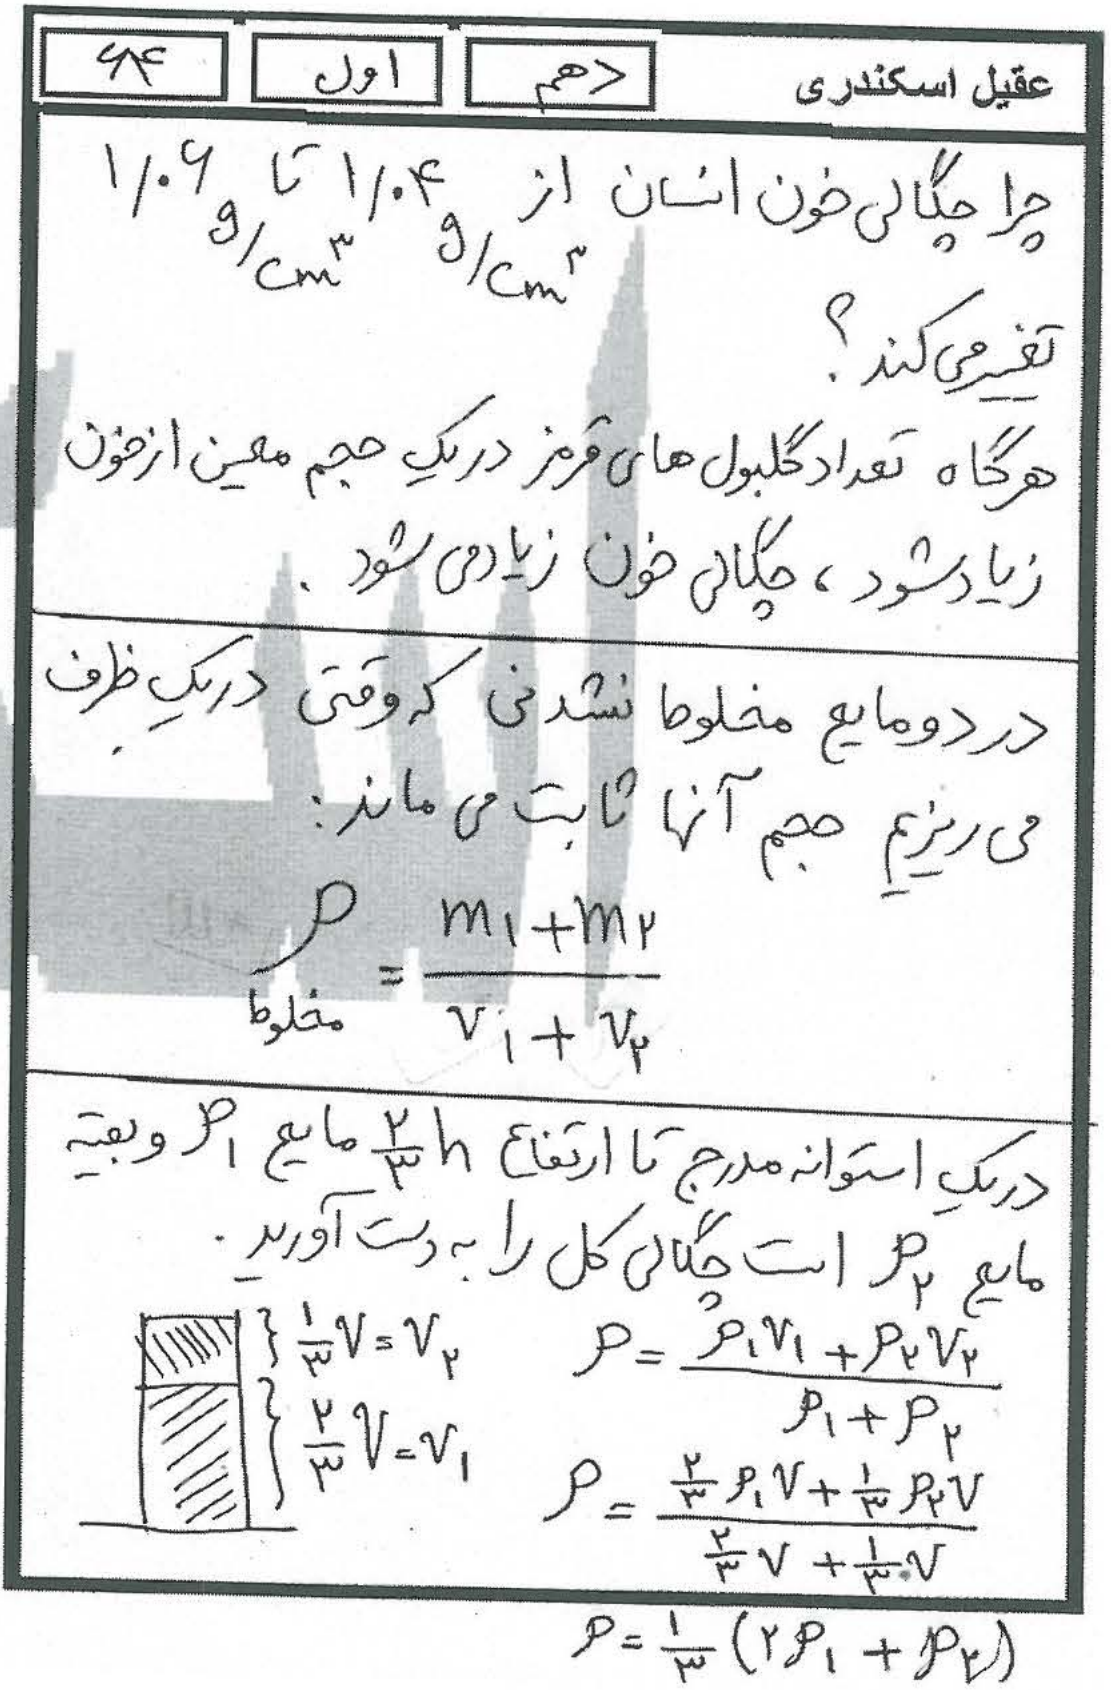 عقیل اسکندری
دهم
اول
۶۴
چرا چگالی خون انسان از ۱/۰۴ g/cm۳ تا ۱/۰۶ g/cm۳
تغییر می کند ؟
هرگاه تعداد گلبول های قرمز در یک حجم معین از خون
زیاد شود ، چگالی خون زیاد می شود .
در دو مایع مخلوط نشدنی که وقتی در یک ظرف
می ریزیم حجم آنها ثابت می ماند :
ρ مخلوط = (m۱ + m۲) / (V۱ + V۲)
در یک استوانه مدرج تا ارتفاع ۲/۳ h مایع ρ۱ و بقیه
مایع ρ۲ است چگالی کل را به دست آورید .
۱/۳ V = V۲
۲/۳ V = V۱
ρ = (ρ۱V۱ + ρ۲V۲) / (ρ۱ + ρ۲)
ρ = (۲/۳ ρ۱V + ۱/۳ ρ۲V) / (۲/۳ V + ۱/۳ V)
ρ = ۱/۳ (۲ρ۱ + ρ۲)